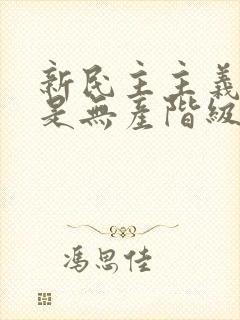 新民主主義
是無產階級
馮思佳